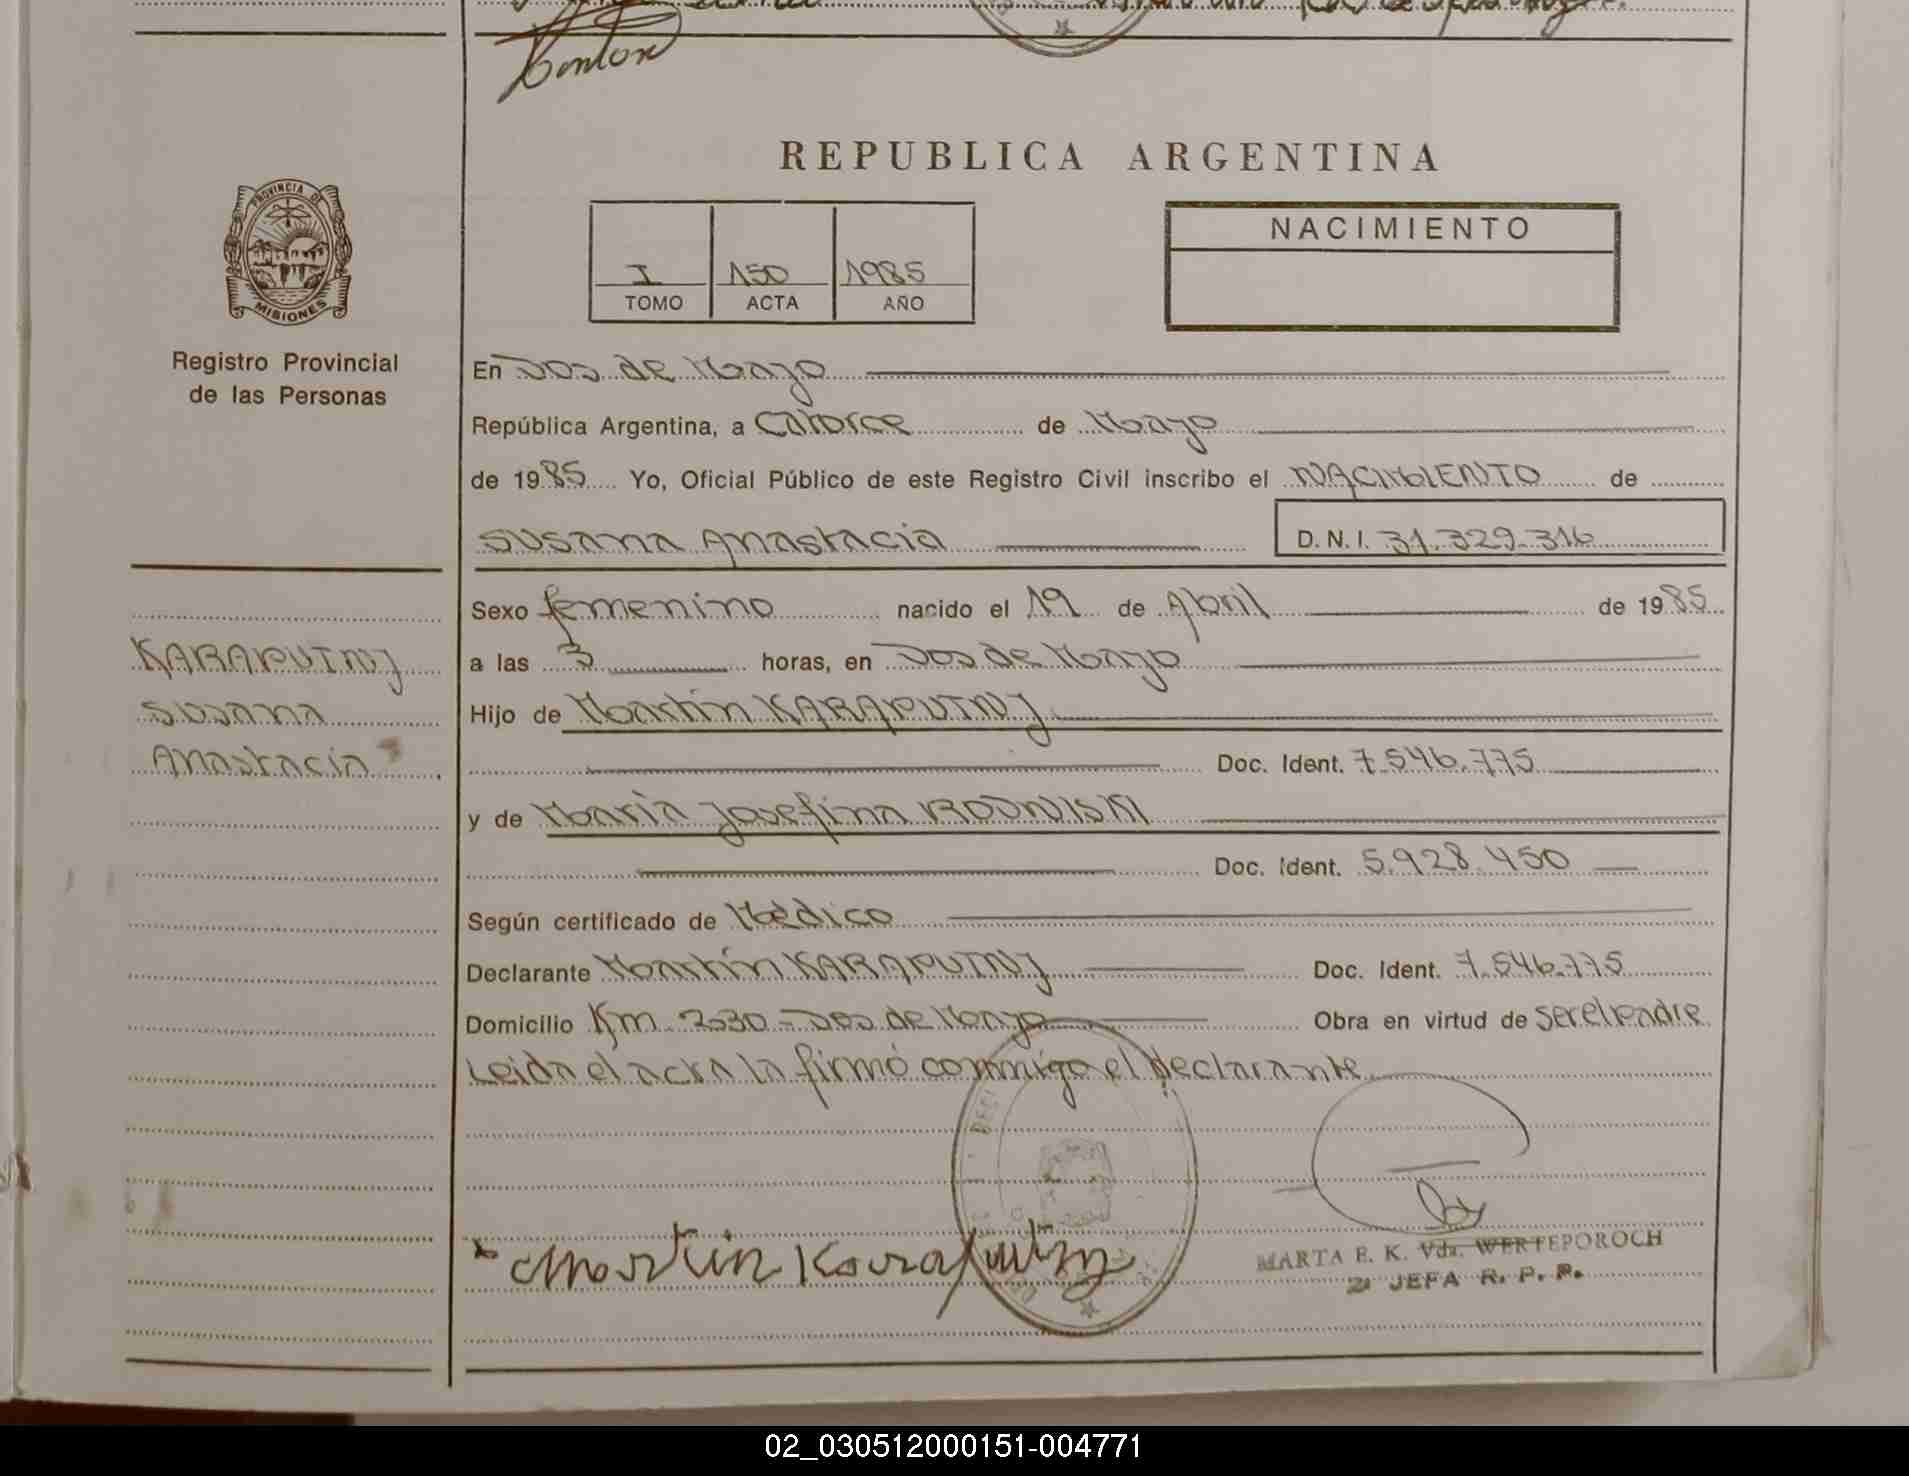 REPUBLICA ARGENTINA
PROVINCIA DE
MISIONES
Registro Provincial
de las Personas
I 150 1985
TOMO ACTA AÑO
NACIMIENTO
En Dos de Mayo
República Argentina, a Catorce de Mayo
de 1985 Yo, Oficial Público de este Registro Civil inscribo el NACIMIENTO de
SUSANA Anastacia D. N. I. 31.329.316
Sexo femenino nacido el 19 de Abril de 1985
KARAPUTNJ
SUSANA
Anastacia
a las 3 horas, en Dos de Mayo
Hijo de Martín KARAPUTNJ
Doc. Ident. 7.546.775
y de María Josefina
Doc. Ident. 5.928.450
Según certificado de Médico
Declarante Martín KARAPUTNJ Doc. Ident. 7.546.775
Domicilio Km. 2530 - Dos de Mayo Obra en virtud de ser el padre
Leida el acta la firmó conmigo el declarante
Martin Karaputnz
MARTA E. K. Vda. WERTEPOROCH
2ª JEFA R. P. P.
02_030512000151-004771